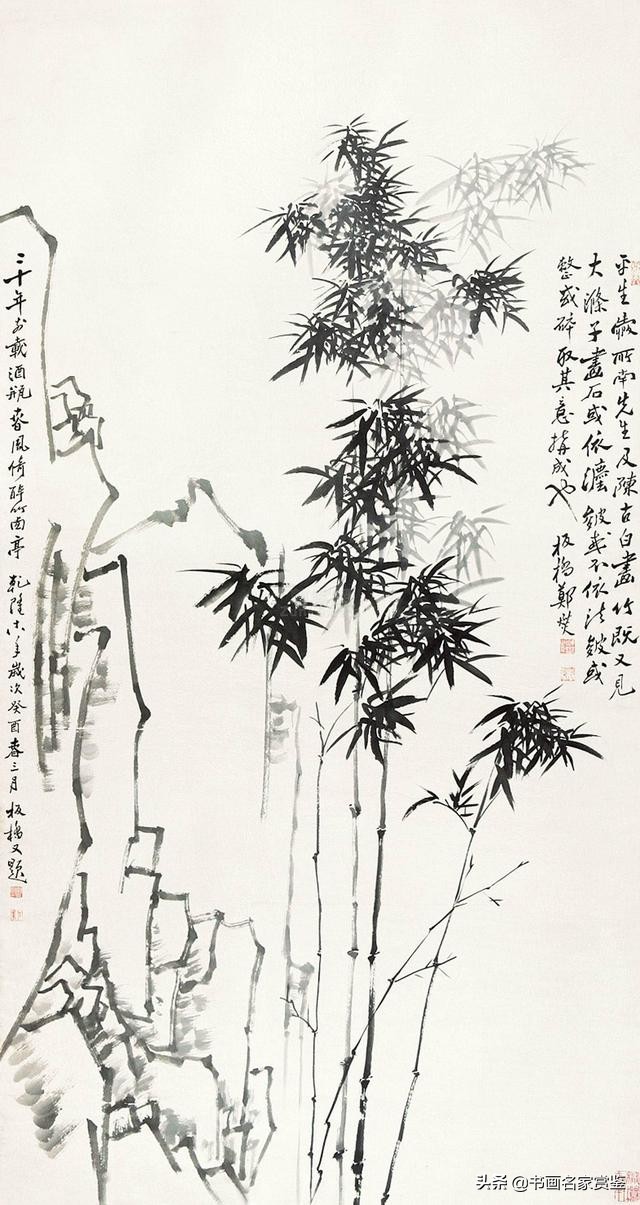 平生爱所南先生及陈古白画竹既又见
大滌子畫石或依法皴或不依法皴或
整或碎取其意構成也 板橋鄭燮
三十年前載酒瓶春風倚醉竹西亭 乾隆十八年歲次癸酉春三月 板橋又題
头条 @书画名家赏鉴